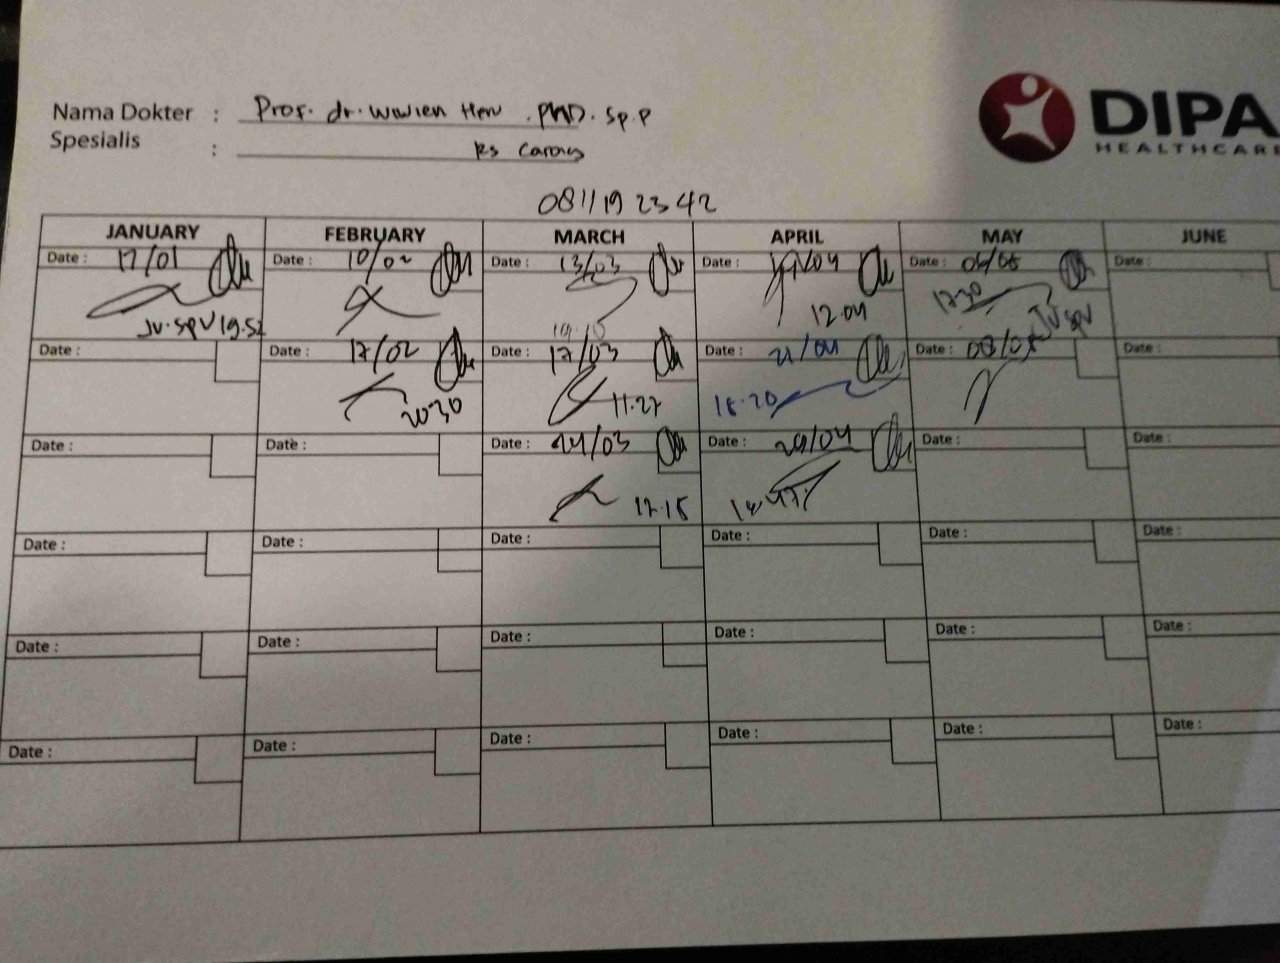 Nama Dokter : Prof. dr. Wiwien Heru .PHD. Sp.P
Spesialis : RS Carolus
DIPA
HEALTHCARE
0811 19 23 42
JANUARY FEBRUARY MARCH APRIL MAY JUNE
Date : 17/01 Date : 10/02 Date : 13/03 Date : /04 Date : 06/05 Date :
Jv. SPV 19.52 12.04 17.30 Jv SPV
Date : Date : 17/02 Date : 17/03 Date : 21/04 Date : 08/05 Date :
20.30 11.27 18.20
Date : Date : Date : 24/03 Date : 29/04 Date : Date :
17.15
Date : Date : Date : Date : Date : Date :
Date : Date : Date : Date : Date : Date :
Date : Date : Date : Date : Date : Date :